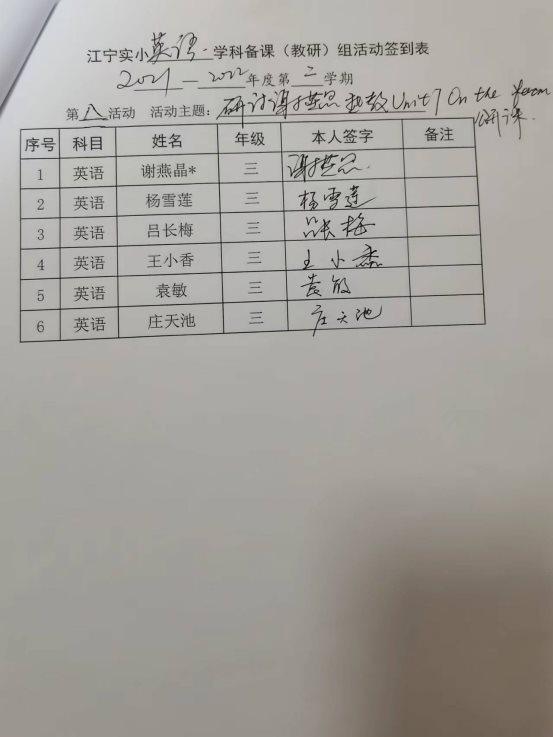 江宁实小英语学科备课（教研）组活动签到表
2021—2022年度第二学期
第八活动 活动主题：研讨谢燕晶执教Unit7 On the farm
研课.
序号 科目 姓名 年级 本人签字 备注
1 英语 谢燕晶* 三 谢燕晶
2 英语 杨雪莲 三 杨雪莲
3 英语 吕长梅 三 吕长梅
4 英语 王小香 三 王小香
5 英语 袁敏 三 袁敏
6 英语 庄天池 三 庄天池